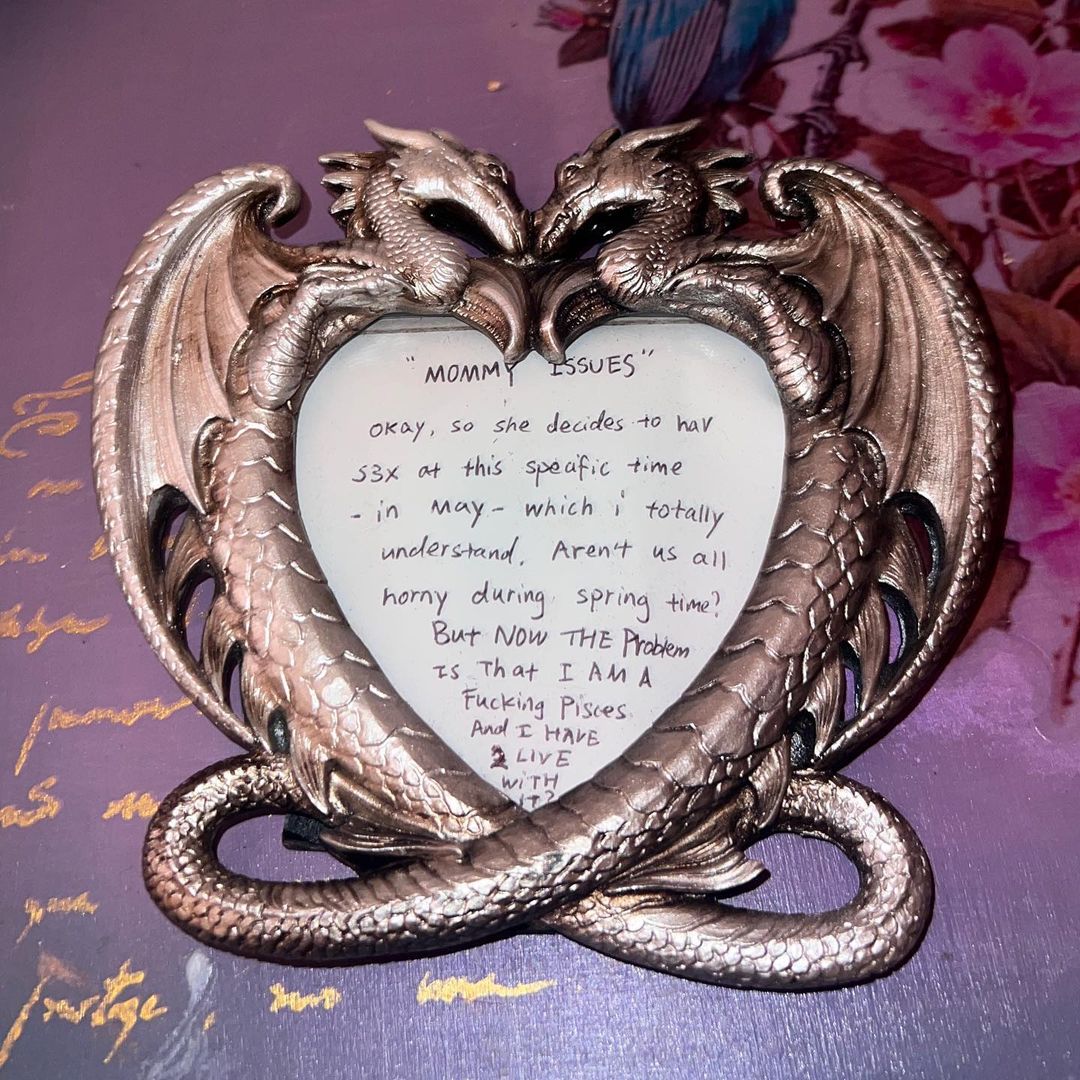 "MOMMY ISSUES"
okay, so she decides to hav
s3x at this speafic time
- in May - which i totally
understand. Aren't us all
horny during spring time?
But NOW THE Problem
Is That I AM A
Fucking Pisces
And I HAVE
2 LIVE
WITH
IT?